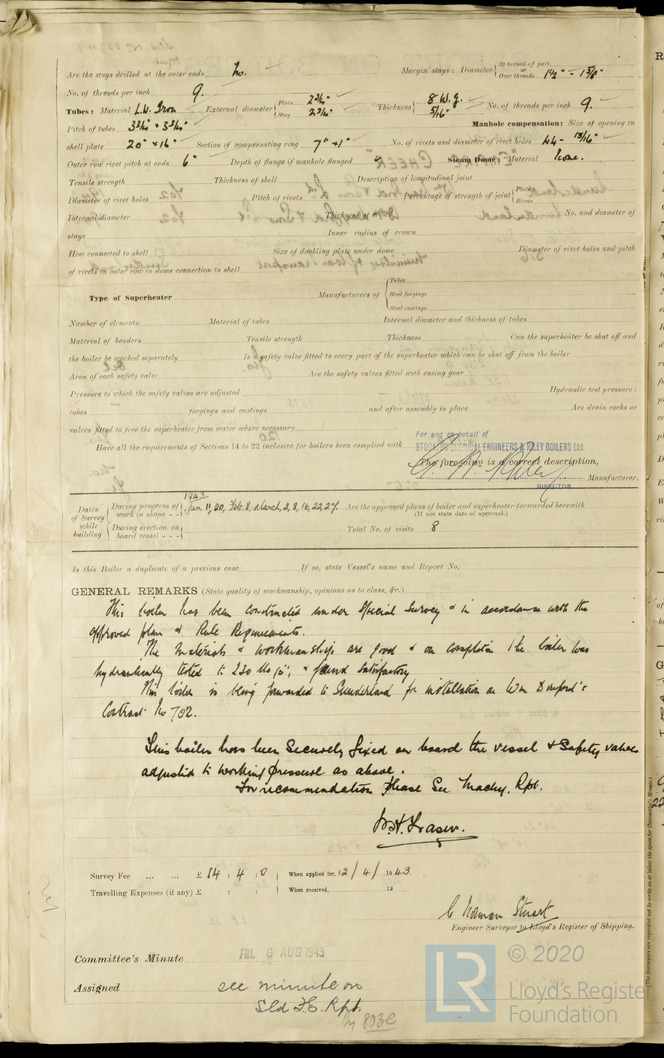 Are the stays drilled at the outer ends No. Margin stays: Diameter { At turned off part, or Over threads 1½" - 1⅝"
No. of threads per inch 9.
Tubes: Material L.W. Iron External diameter { Plain 2¾" Stay 2¾" Thickness { 8 W.G. 5/16" No. of threads per inch 9.
Pitch of tubes 3¾" × 3¾" Manhole compensation: Size of opening in
shell plate 20" × 16" Section of compensating ring 7" × 1" No. of rivets and diameter of rivet holes 44 - 15/16"
Outer row rivet pitch at ends 6" Depth of flange if manhole flanged Steam Dome: Material None.
Tensile strength Thickness of shell Description of longitudinal joint
Diameter of rivet holes Pitch of rivets Percentage of strength of joint { Plate Rivets
Internal diameter Thickness of No. and diameter of
stays Inner radius of crown
How connected to shell Size of doubling plate under dome Diameter of rivet holes and pitch
of rivets in outer row in dome connection to shell
Type of Superheater Manufacturers of { Tubes Steel forgings Steel castings
Number of elements Material of tubes Internal diameter and thickness of tubes
Material of headers Tensile strength Thickness Can the superheater be shut off and
the boiler be worked separately Is a safety valve fitted to every part of the superheater which can be shut off from the boiler
Area of each safety valve Are the safety valves fitted with easing gear
Pressure to which the safety valves are adjusted Hydraulic test pressure:
tubes forgings and castings and after assembly in place Are drain cocks or
valves fitted to free the superheater from water where necessary
Have all the requirements of Sections 14 to 22 inclusive for boilers been complied with
For and on behalf of
STOCKTON CHEMICAL ENGINEERS & RILEY BOILERS Ltd.
The foregoing is a correct description,
Manufacturer.
DIRECTOR
Dates of Survey while building { During progress of work in shops - - 1943 Jan 11, 20, Feb. 8, March, 2, 8, 16, 22, 27. Are the approved plans of boiler and superheater forwarded herewith
(If not state date of approval.)
During erection on board vessel - - - Total No. of visits 8
Is this Boiler a duplicate of a previous case If so, state Vessel's name and Report No.
GENERAL REMARKS (State quality of workmanship, opinions as to class, &c.)
This boiler has been constructed under Special Survey & in accordance with the
approved plan & Rule Requirements.
The materials & workmanship are good & on completion the boiler was
hydraulically tested to 230 lbs/□", & found satisfactory
This boiler is being forwarded to Sunderland for installation on Wm Doxford's
Contract No 702.
This boiler has been securely fixed on board the vessel & Safety valves
adjusted to working pressure as above.
For recommendation please See Machy. Rpt.
W.H. Fraser.
Survey Fee ... ... £ 14 : 4 : 0 When applied for, 12/4/1943.
Travelling Expenses (if any) £ : : When received, 19
C Norman Stuart
Engineer Surveyor to Lloyd's Register of Shipping.
Committee's Minute FRI. 6 AUG 1943
Assigned see minute on
Sld F.E. Rpt.
© 2020
LR
Lloyd's Register
Foundation